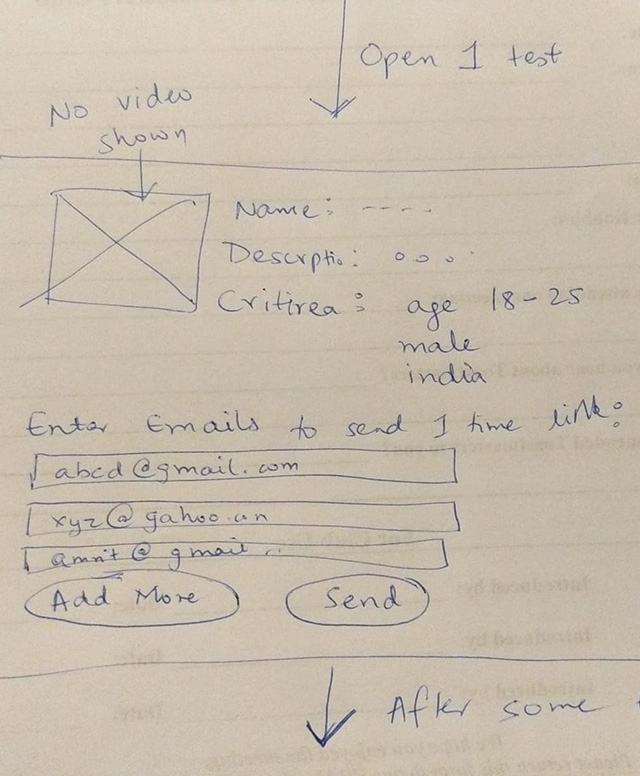 Open 1 test
No video
shown
Name: ----
Descrptio: ooo
Critirea: age 18-25
male
india
Enter Emails to send 1 time link:
abcd@gmail.com
xyz@yahoo.in
amrit@gmail..
Add More Send
After some